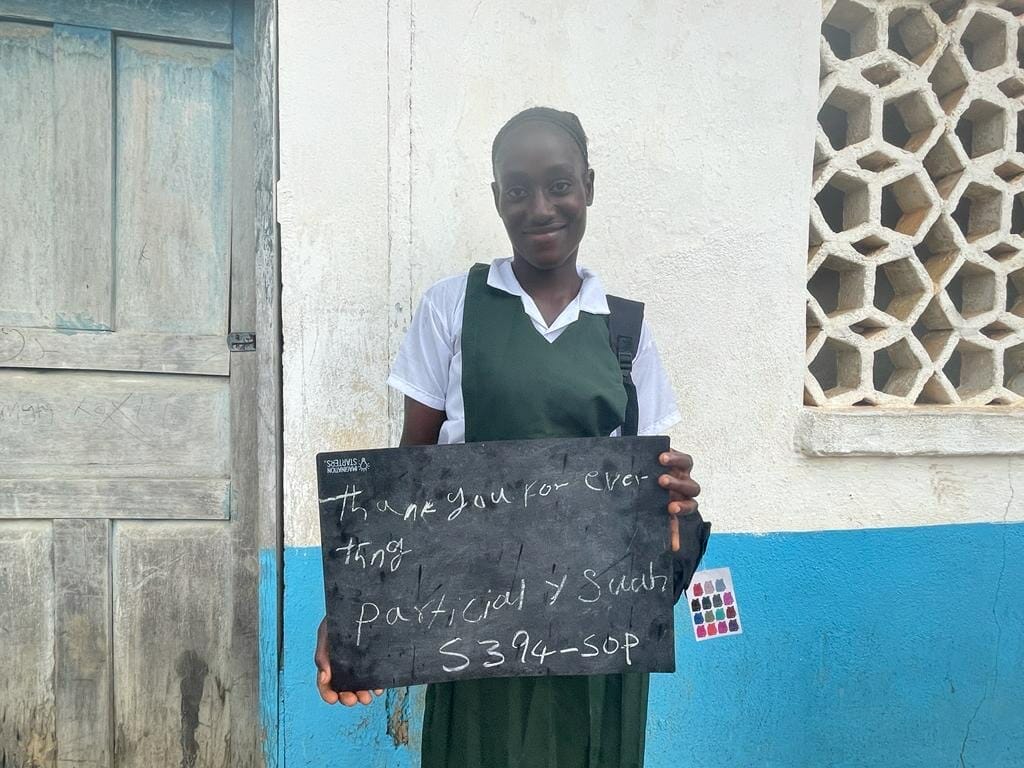 IMAGINATION
STARTERS
thank you for ever-
thng
particial Y Suah
S394-SOP